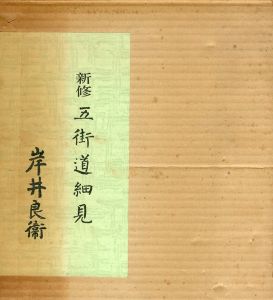 新修
五街道細見
岸井良衞